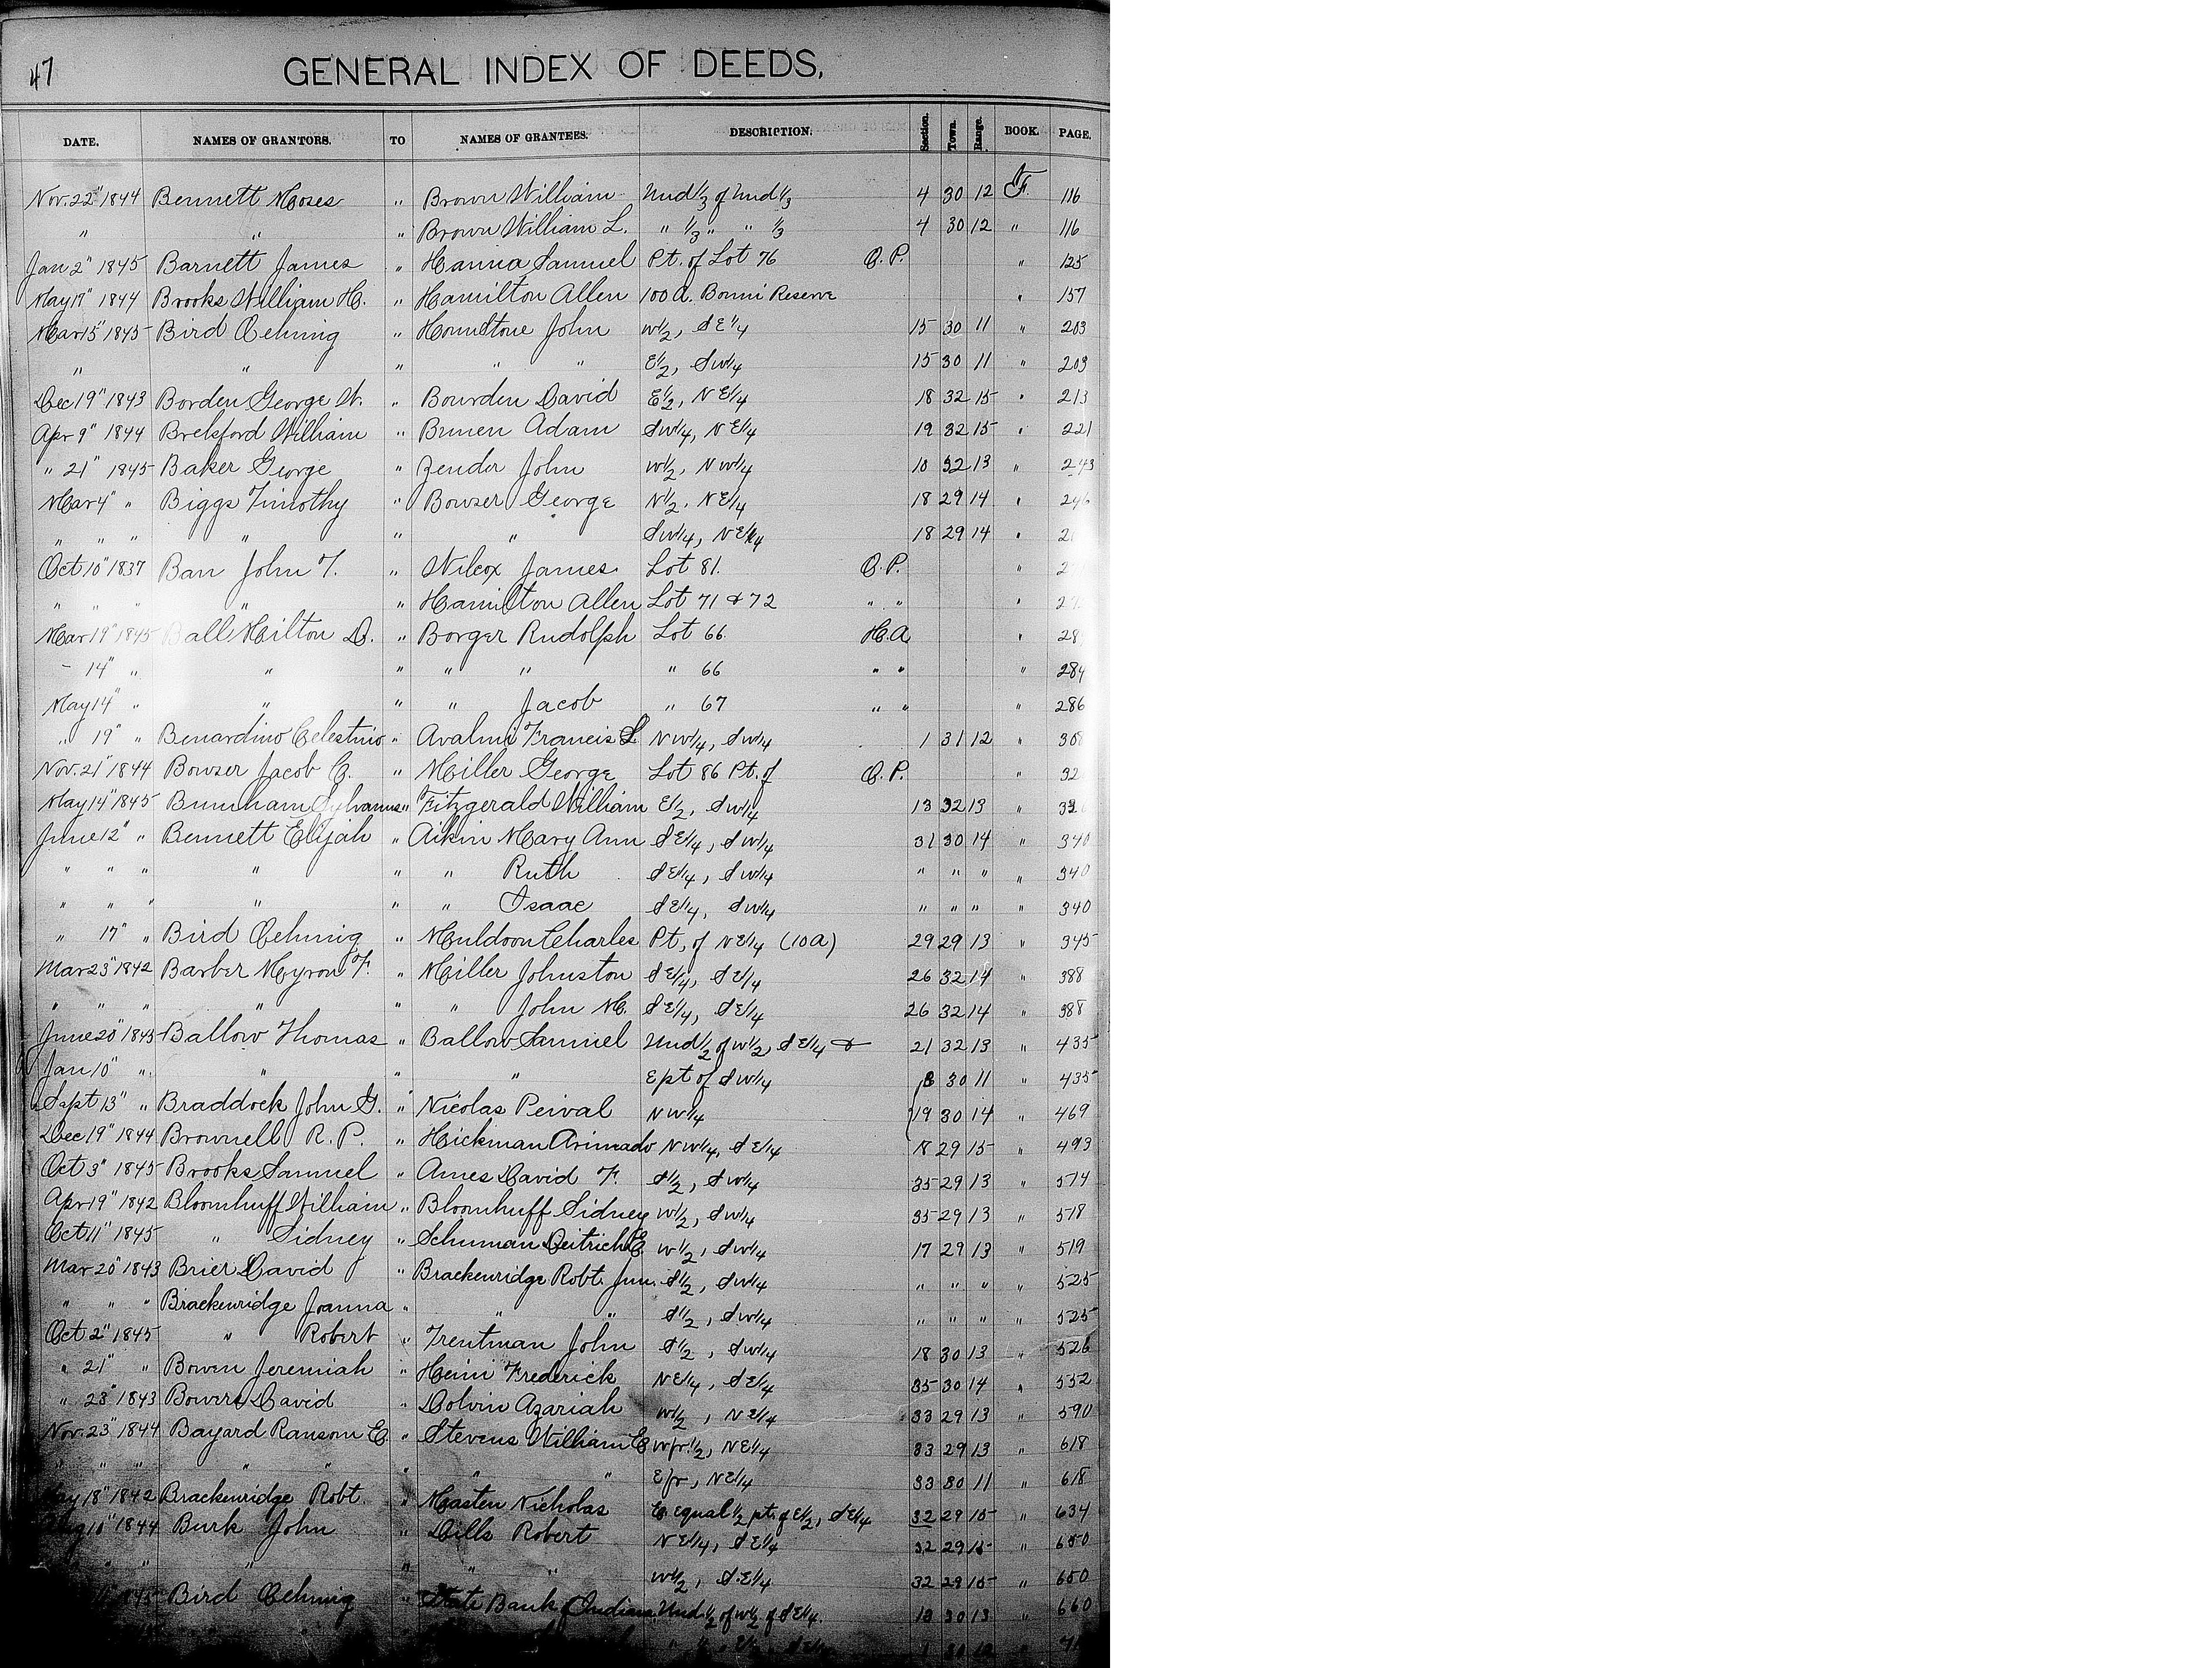 47 GENERAL INDEX OF DEEDS,
DATE. NAMES OF GRANTORS. TO NAMES OF GRANTEES. DESCRIPTION. Section. Town. Range. BOOK. PAGE.
Nov. 22" 1844 Bennett Moses " Brown William Und 1/3 of Und 1/3 4 30 12 F. 116
" " " Brown William L. " 1/3 " " 1/3 4 30 12 " 116
Jan 2" 1845 Barnett James " Hanna Samuel Pt. of Lot 76 O.P. " 125
May 17" 1844 Brooks William H. " Hamilton Allen 100 a. Reserve " 157
Mar 15" 1845 Bird Ochmig " John W 1/2, SE 1/4 15 30 11 " 203
" " " " " E 1/2, SW 1/4 15 30 11 " 203
Dec 19" 1843 Borden George W. " Bourden David E 1/2, NE 1/4 18 32 15 " 213
Apr 9" 1844 Brekford William " Adam SW 1/4, NE 1/4 19 32 15 " 221
" 21" 1845 Baker George " Zender John W 1/2, NW 1/4 10 32 13 " 243
Mar 4" " Biggs Timothy " Bowser George N 1/2, NE 1/4 18 29 14 " 246
" " " " " " SW 1/4, NE 1/4 18 29 14 "
Oct 10" 1837 Barr John T. " Wilcox James Lot 81. O.P. "
" " " " " Hamilton Allen Lot 71 & 72 " " "
Mar 19" 1845 Ball Milton B. " Borger Rudolph Lot 66 H.A "
" 14" " " " " " " 66 " " " 284
May 14" " " " " Jacob " 67 " " " 286
" 19" " Benardino Celestino " Francis L NW 1/4, SW 1/4 1 31 12 " 308
Nov. 21" 1844 Bowser Jacob C. " Miller George Lot 86 Pt. of O.P. "
May 14" 1845 Burnham Sylvanus " Fitzgerald William E 1/2, SW 1/4 13 32 13 "
June 12" " Bennett Elijah " Aikin Mary Ann SE 1/4, SW 1/4 31 30 14 " 340
" " " " " " Ruth SE 1/4, SW 1/4 " " " " 340
" " " " " " Isaac SE 1/4, SW 1/4 " " " " 340
" 17" " Bird Ochmig " Muldoon Charles Pt. of NE 1/4 (10 a) 29 29 13 " 345
Mar 23" 1842 Barber Myron F. " Miller Johnston SE 1/4, SE 1/4 26 32 14 " 388
" " " " " " John M. SE 1/4, SE 1/4 26 32 14 " 388
June 20" 1843 Ballow Thomas " Ballow Samuel Und 1/2 of W 1/2, SE 1/4 & 21 32 13 " 435
Jan 10" " " " " E pt of SW 1/4 30 11 " 435
Sept 13" " Braddock John G. " Nicolas Peival NW 1/4 19 30 14 " 469
Dec 19" 1844 Brownell R. P. " Hickman NW 1/4, SE 1/4 18 29 15 " 493
Oct 3" 1845 Brooks Samuel " Ames David F. S 1/2, SW 1/4 35 29 13 " 514
Apr 19" 1842 Bloomhuff William " Bloomhuff Sidney W 1/2, SW 1/4 35 29 13 " 518
Oct 11" 1845 " Sidney " Schuman Deitrich C W 1/2, SW 1/4 17 29 13 " 519
Mar 20" 1843 Brier David " Brackenridge Robt. Jun. S 1/2, SW 1/4 " " " " 525
" " " Brackenridge Joanna " " " S 1/2, SW 1/4 " " " " 525
Oct 2" 1845 " Robert " Trentman John S 1/2, SW 1/4 18 30 13 " 526
" 21" " Bowen Jeremiah " Frederick NE 1/4, SE 1/4 35 30 14 " 552
" 23" 1843 Bowers David " Azariah W 1/2, NE 1/4 33 29 13 " 590
Nov. 23" 1844 Bayard Ransom E. " Stevens William W fr. 1/2, NE 1/4 33 29 13 " 618
" " " " " " " " E fr, NE 1/4 33 30 11 " 618
May 18" 1842 Brackenridge Robt. " Masten Nicholas E equal 1/2 pt. of E 1/2, SE 1/4 32 29 15 " 634
10" 1844 Burk John " Dills Robert NE 1/4, SE 1/4 32 29 15 " 650
" " " " " " W 1/2, SE 1/4 32 29 15 " 650
1845 Bird Ochmig " State Bank of Indiana Und. 1/2 of W 1/2 of SE 1/4. 30 13 " 660